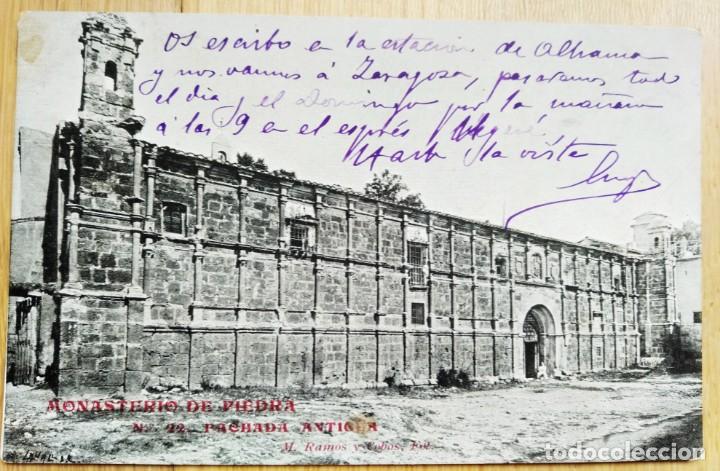 Os escribo en la estación de Alhama
y nos vamos á Zaragoza, pasaremos todo
el día, y el Domingo por la mañana
á las 9 en el esprés
Hasta la vista
MONASTERIO DE PIEDRA
N.º 22. FACHADA ANTIGUA
M. Ramos y Cobos, Fot.
todocoleccion